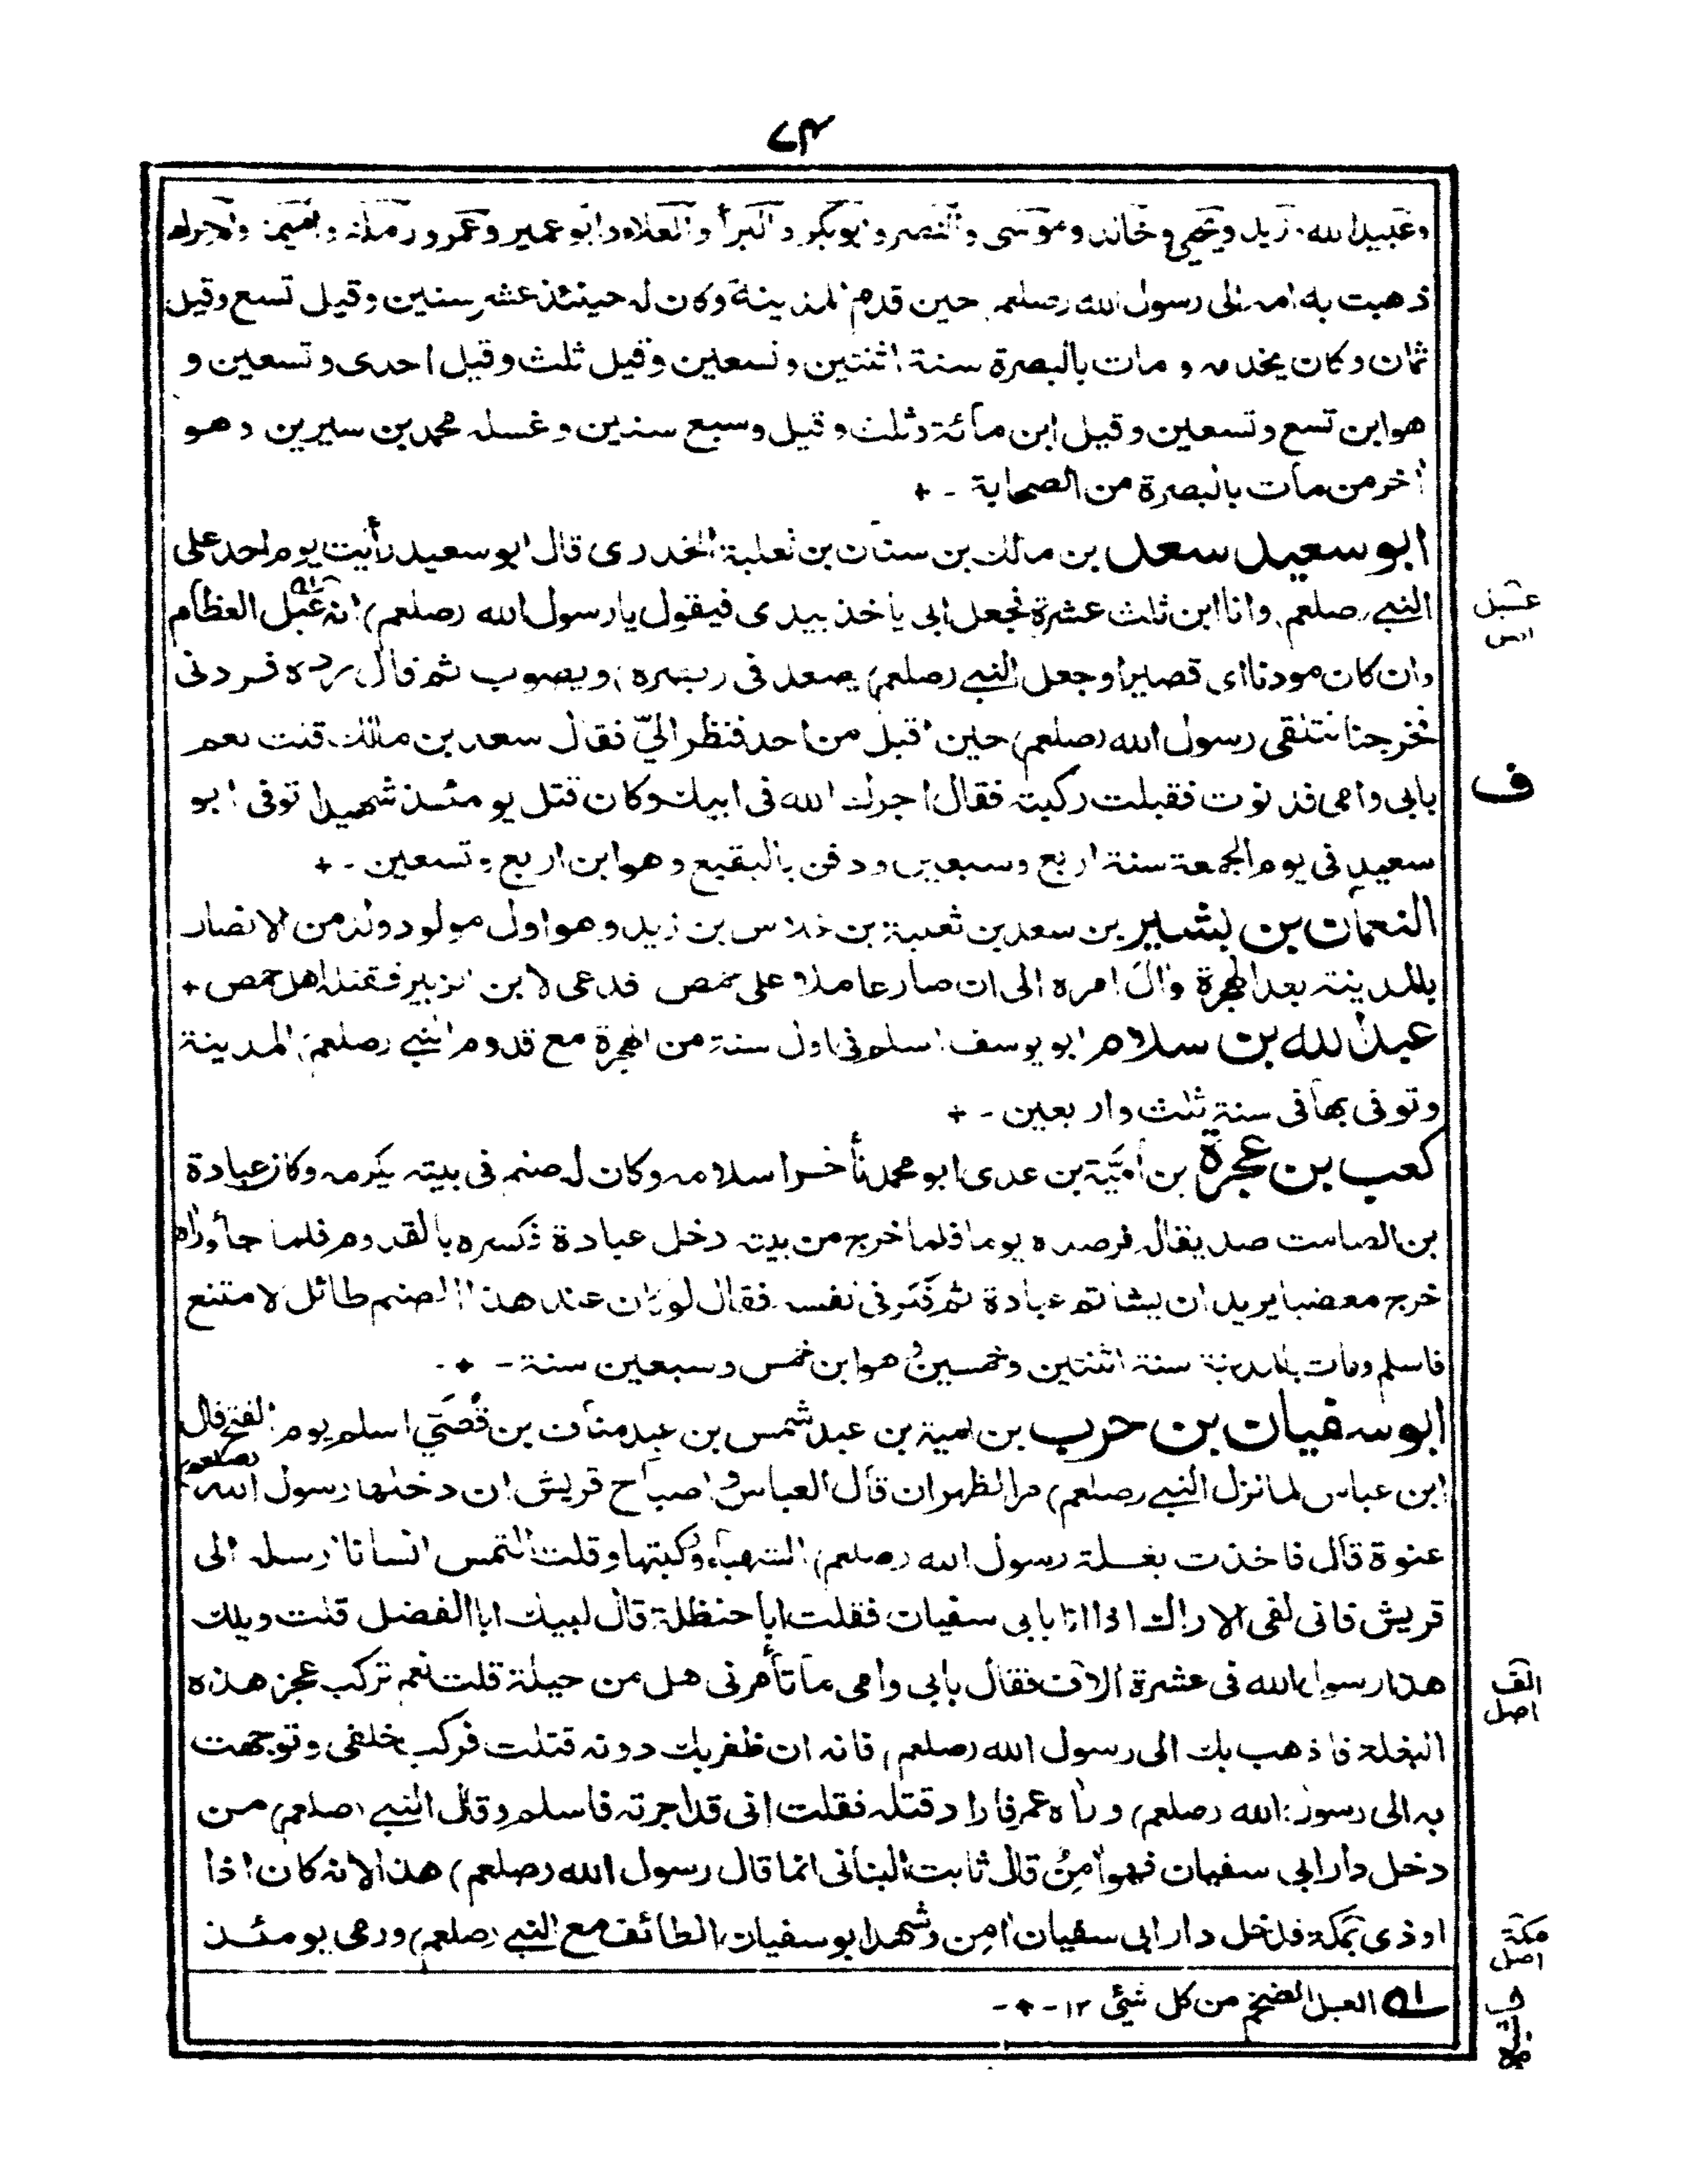 ٧٤
وعبيد الله وزيد ويحيى وخالد وموسى والنضر وابوبكر والبرأ والعلاء وابوعمير وعمرو ورملة واميمة
ذهبت به امه الى رسول الله (صلعم) حين قدم المدينة وكان له حينئذ عشر سنين وقيل تسع وقيل
ثمان وكان يخدمه ومات بالبصرة سنة اثنتين وتسعين وقيل ثلث وقيل احدى وتسعين و
هوابن تسع وتسعين وقيل ابن مائة وثلث وقيل وسبع سنين وغسله محمد بن سيرين وهو
اخر من مات بالبصرة من الصحابة - +
ابو سعيد سعد بن مالك بن سنان بن ثعلبة الخدرى قال ابو سعيد رأيت يوم احد على
النبي (صلعم) وانا ابن ثلث عشرة فجعل ابى يأخذ بيدى فيقول يارسول الله (صلعم) انه عبل العظام
وان كان مودنا اى قصيرا وجعل النبي (صلعم) يصعد فى (بصره) ويصوب ثم قال رده فردنى
فخرجنا نتلقى رسول الله (صلعم) حين اقبل من احد فنظر الىّ فقال سعد بن مالك قلت نعم
بابى وامى فدنوت فقبلت ركبته فقال اجرك الله فى ابيك وكان قتل يومئذ شهيدا توفى ابو
سعيد فى يوم الجمعة سنة اربع وسبعين ودفن بالبقيع وهو ابن اربع وتسعين - +
النعمان بن بشير بن سعد بن ثعلبة بن خلاس بن زيد وهو اول مولود ولد من الانصار
بالمدينة بعد الهجرة وال امره الى ان صار عاملا على حمص فدعى لابن الزبير فقتله اهل حمص +
عبد الله بن سلام ابو يوسف اسلم فى اول سنة من الهجرة مع قدوم النبي (صلعم) المدينة
وتوفى بها فى سنة ثلث واربعين - +
كعب بن عجرة بن أميّة بن عدى ابو محمد تأخر اسلامه وكان له صنم فى بيته يكرمه وكان عبادة
بن الصامت صديقا له فرصده يوما فلما خرج من بيته دخل عبادة فكسره بالقدوم فلما جاء ورآه
خرج مغضبا يريد ان يشاتم عبادة ثم فكر فى نفسه فقال لو كان عند هذا الصنم طائل لامتنع
فاسلم ومات بالمدينة سنة اثنتين وخمسين وهوابن خمس وسبعين سنة - + -
ابو سفيان بن حرب بن امية بن عبد شمس بن عبد مناف بن قُصَيّ اسلم يوم الفتح قال
ابن عباس لما نزل النبي (صلعم) مر الظهران قال العباس واصباح قريش ان دخلها رسول الله (صلعم)
عنوة قال فاخذت بغلة رسول الله (صلعم) الشهباء وركبتها وقلت التمس انسانا ارسله الى
قريش فانى لفى الاراك اذا انا بابى سفيان فقلت ابا حنظلة قال لبيك ابا الفضل قلت ويلك
هذا رسول الله فى عشرة الاف فقال بابى وامى ما تأمرنى هل من حيلة قلت نعم تركب عجز هذه
البغلة فاذهب بك الى رسول الله (صلعم) فانه ان ظفر بك دونه قتلت فركب خلفى وتوجهت
به الى رسول الله (صلعم) ورأه عمر فاراد قتله فقلت انى قد اجرته فاسلم وقال النبي (صلعم) من
دخل دار ابى سفيان فهو امِنٌ قال ثابت البنانى انما قال رسول الله (صلعم) هذا لانه كان اذا
اوذى بمكة فدخل دار ابى سفيان امِن وشهد ابو سفيان الطائف مع النبي (صلعم) ورمى يومئذ
١ه العبل الضخم من كل شئ ١٢ - + -
ف
الف
اصل
مكة
اصل